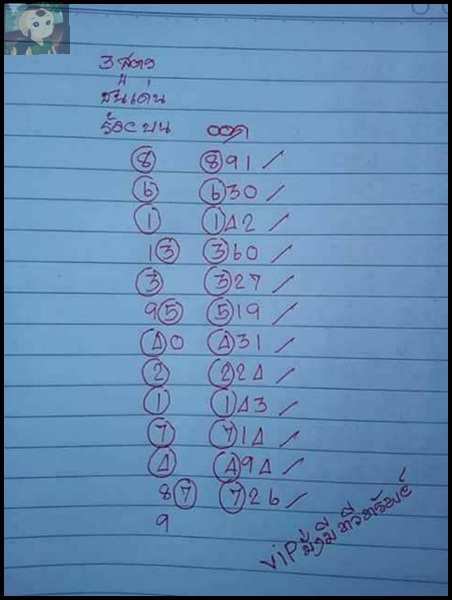 3 สูตร
เด่น
ร้อยบน ออก
8 891 /
6 630 /
1 142 /
13 360 /
3 327 /
95 519 /
40 431 /
2 224 /
1 143 /
7 714 /
4 494 /
87 726 /
9
VIP มั่งมี ทวีทรัพย์